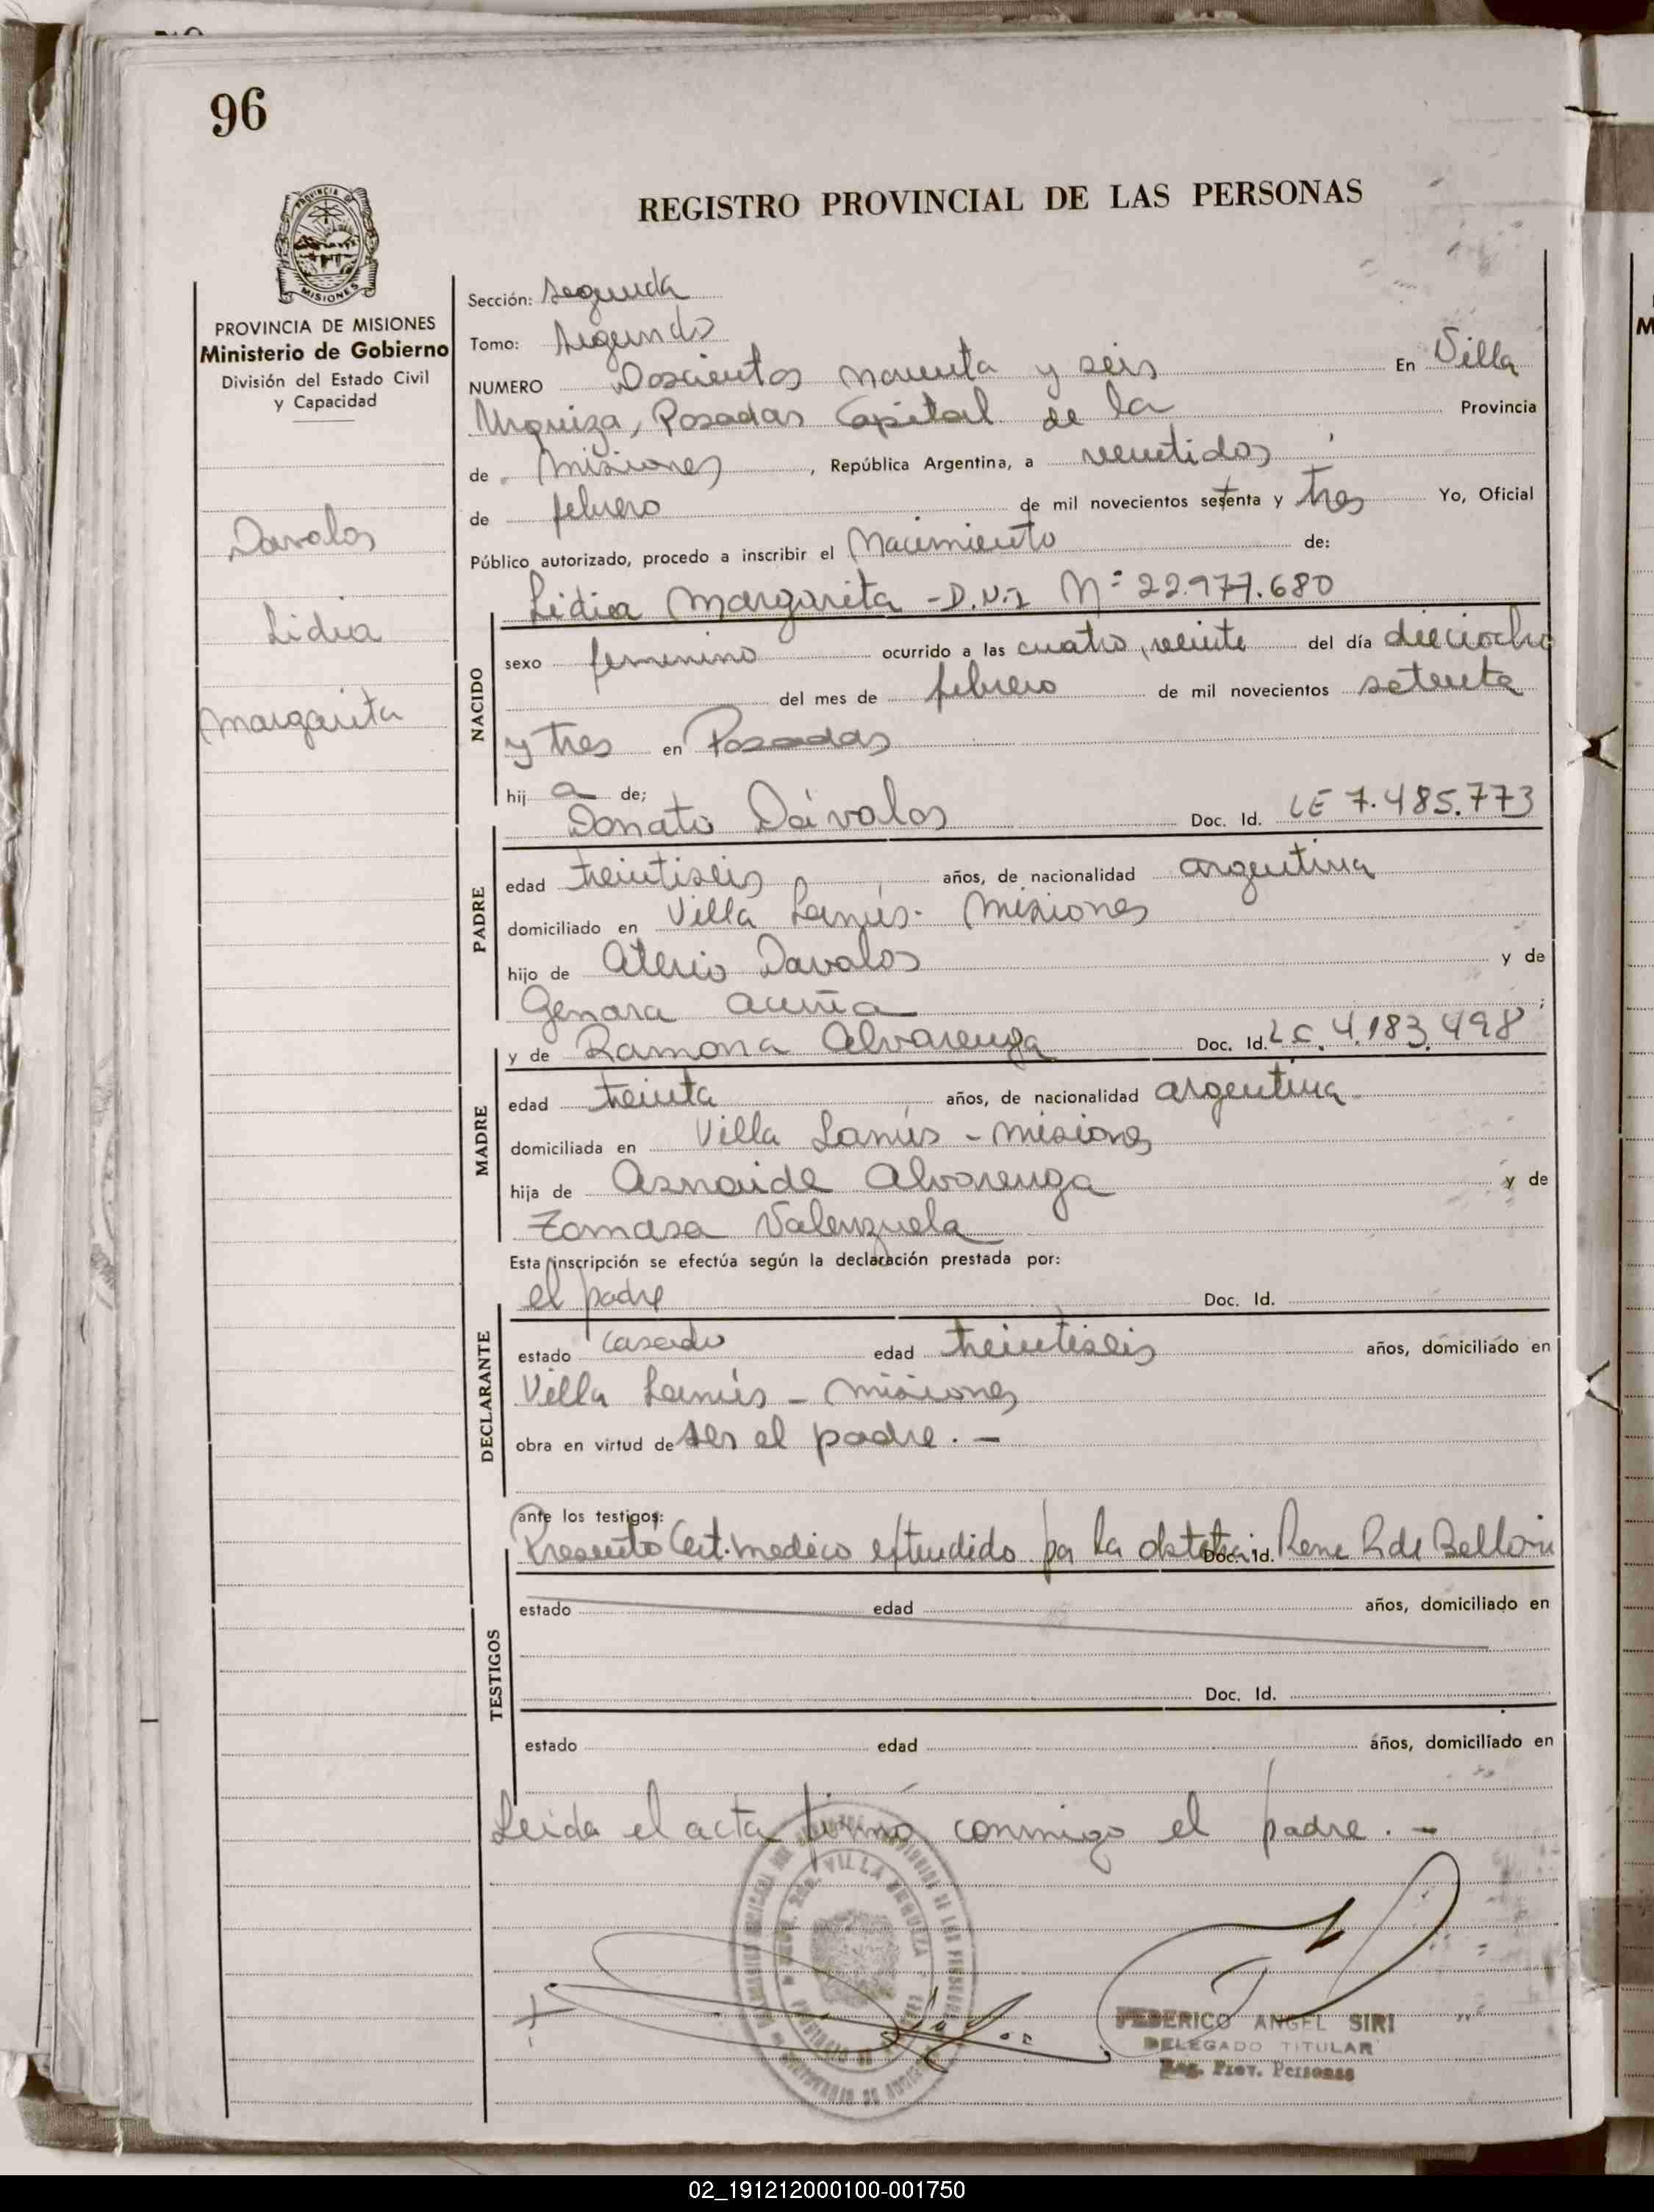 96
PROVINCIA DE MISIONES
REGISTRO PROVINCIAL DE LAS PERSONAS
PROVINCIA DE MISIONES
Ministerio de Gobierno
División del Estado Civil
y Capacidad
Davalos
Lidia
Margarita
Sección: Segunda
Tomo: Segundo
NUMERO Doscientos noventa y seis En Villa
Urquiza, Posadas Capital de la Provincia
de Misiones, República Argentina, a veintidos
de febrero de mil novecientos setenta y tres Yo, Oficial
Público autorizado, procedo a inscribir el Nacimiento de:
Lidia Margarita - D.N.I Nº 22.977.680
NACIDO
sexo femenino ocurrido a las cuatro, veinte del día dieciocho
del mes de febrero de mil novecientos setenta
y tres en Posadas
hij a de;
Donato Dávalos Doc. Id. LE 7.485.773
PADRE
edad treintiseis años, de nacionalidad argentina
domiciliado en Villa Lanús - Misiones
hijo de Davalos y de
Genara Acuña
y de Ramona Alvarenga Doc. Id. L.C. 4.183.498
MADRE
edad treinta años, de nacionalidad argentina
domiciliada en Villa Lanús - Misiones
hija de Alvarenga y de
Tomasa Valenzuela
Esta inscripción se efectúa según la declaración prestada por:
el padre Doc. Id.
DECLARANTE
estado casado edad treintiseis años, domiciliado en
Villa Lanús - Misiones
obra en virtud de ser el padre. -
ante los testigos:
Presentó Cert. medico extendido por la obstetra Doc. Id. Rene R. de
TESTIGOS
estado edad años, domiciliado en
Doc. Id.
estado edad años, domiciliado en
Leida el acta firmó conmigo el padre. -
VILLA URQUIZA
FEDERICO ANGEL SIRI
DELEGADO TITULAR
Reg. Prov. Personas
02_191212000100-001750